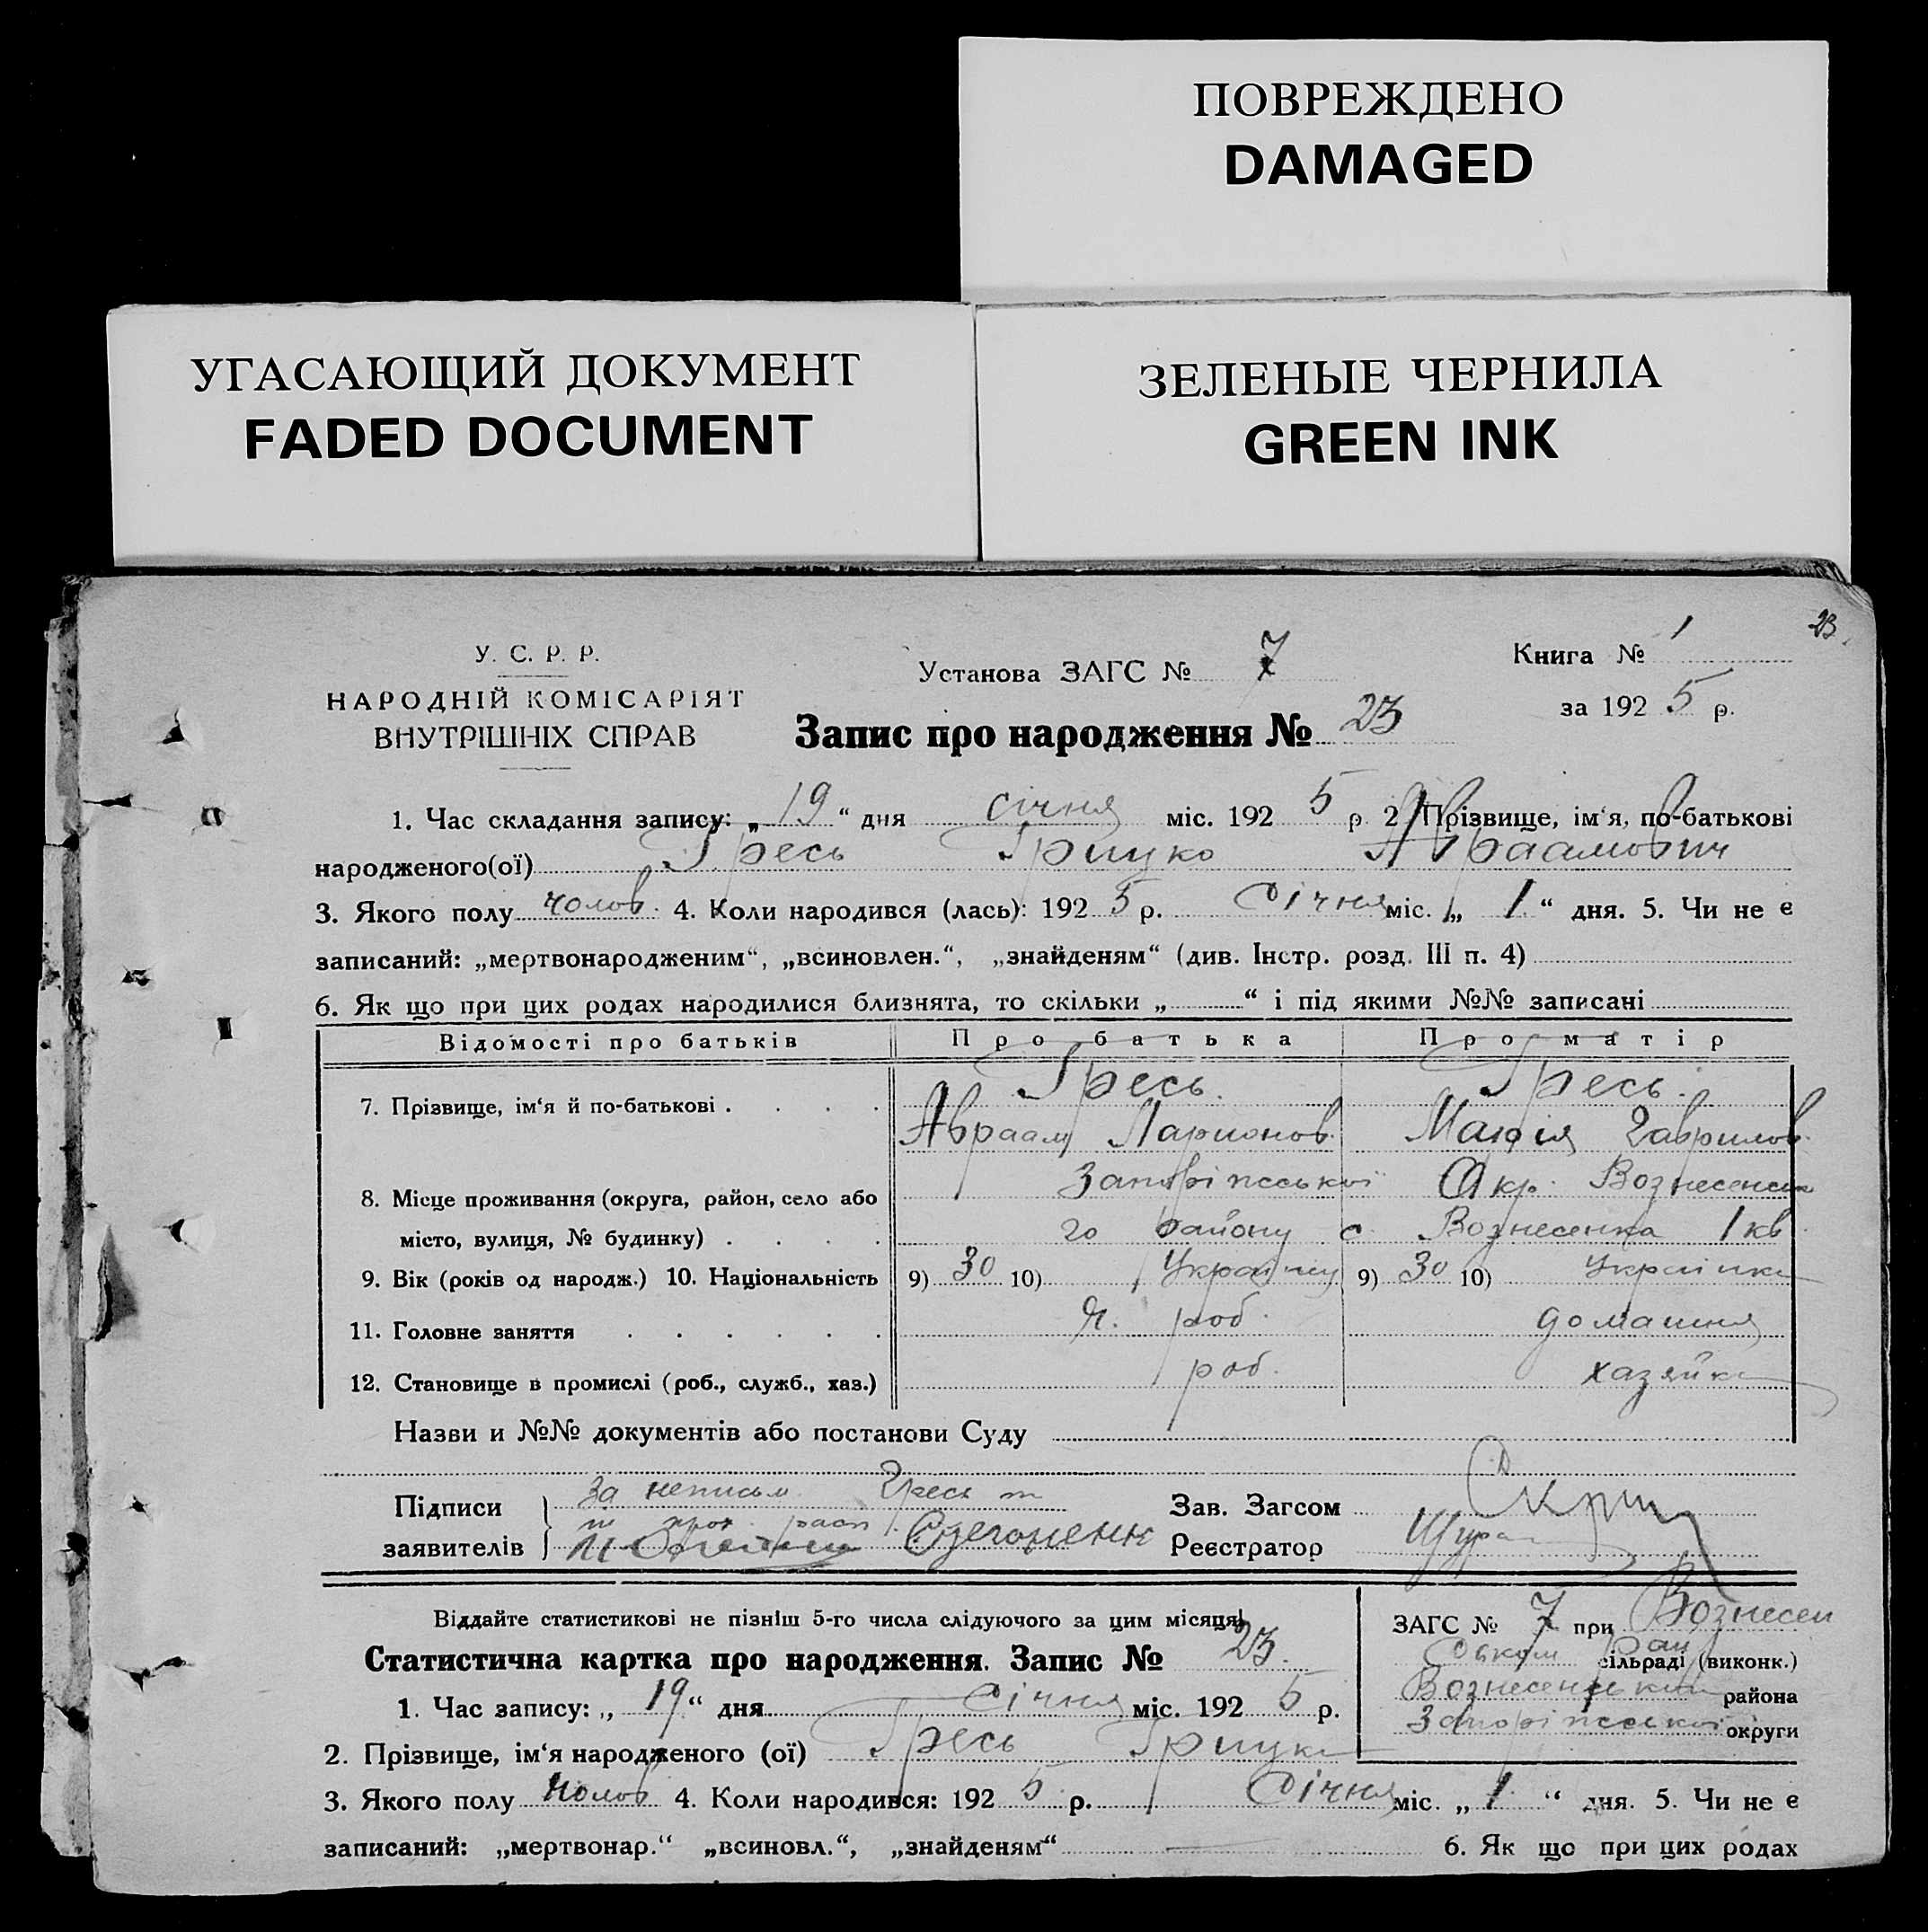 ПОВРЕЖДЕНО
DAMAGED
УГАСАЮЩИЙ ДОКУМЕНТ
FADED DOCUMENT
ЗЕЛЕНЫЕ ЧЕРНИЛА
GREEN INK
23
У. С. Р. Р.
НАРОДНІЙ КОМІСАРІЯТ
ВНУТРІШНІХ СПРАВ
Установа ЗАГС № 7
Книга № 1
за 192 5 р.
Запис про народження № 23
1. Час складання запису: „ 19 “ дня січня міс. 192 5 р. 2. Прізвище, ім‘я, по-батькові
народженого(ої) Гресь Грицко Авраамович
3. Якого полу чолов. 4. Коли народився (лась): 192 5 р. Січня міс. „ 1 “ дня. 5. Чи не є
записаний: „мертвонародженим“, „всиновлен.“, „знайденям“ (див. Інстр. розд. III п. 4)
6. Як що при цих родах народилися близнята, то скільки „ “ і під якими №№ записані
Відомості про батьків Про батька Про матір
Гресь. Гресь.
7. Прізвище, ім‘я й по-батькові . . . .
Авраам Ларионов. Мафія Гаврилов.
8. Місце проживання (округа, район, село або Запоріпсської Окр. Вознесенсь
місто, вулиця, № будинку) . . . . го району с. Вознесенка 1 кв.
9. Вік (років од народж.) 10. Національність 9) 30 10) Українц 9) 30 10) Українка
11. Головне заняття . . . . . . Ч. роб. домашня
12. Становище в промислі (роб., служб., хаз.) роб. хазяйка
Назви и №№ документів або постанови Суду
Підписи За неписьм. Гресь
Зав. Загсом
заявителів
Реєстратор
Віддайте статистикові не пізніш 5-го числа слідуючого за цим місяця!
Статистична картка про народження. Запис № 23.
ЗАГС № 7 при Вознесен
сільраді (виконк.)
Вознесенський района
Запоріпсської округи
1. Час запису: „ 19 “ дня Січня міс. 192 5 р.
2. Прізвище, ім‘я народженого (ої) Гресь Грицко
3. Якого полу чолов 4. Коли народився: 192 5 р. Січня міс. „ 1 “ дня. 5. Чи не є
записаний: „мертвонар.“ „всиновл.“, „знайденям“ 6. Як що при цих родах